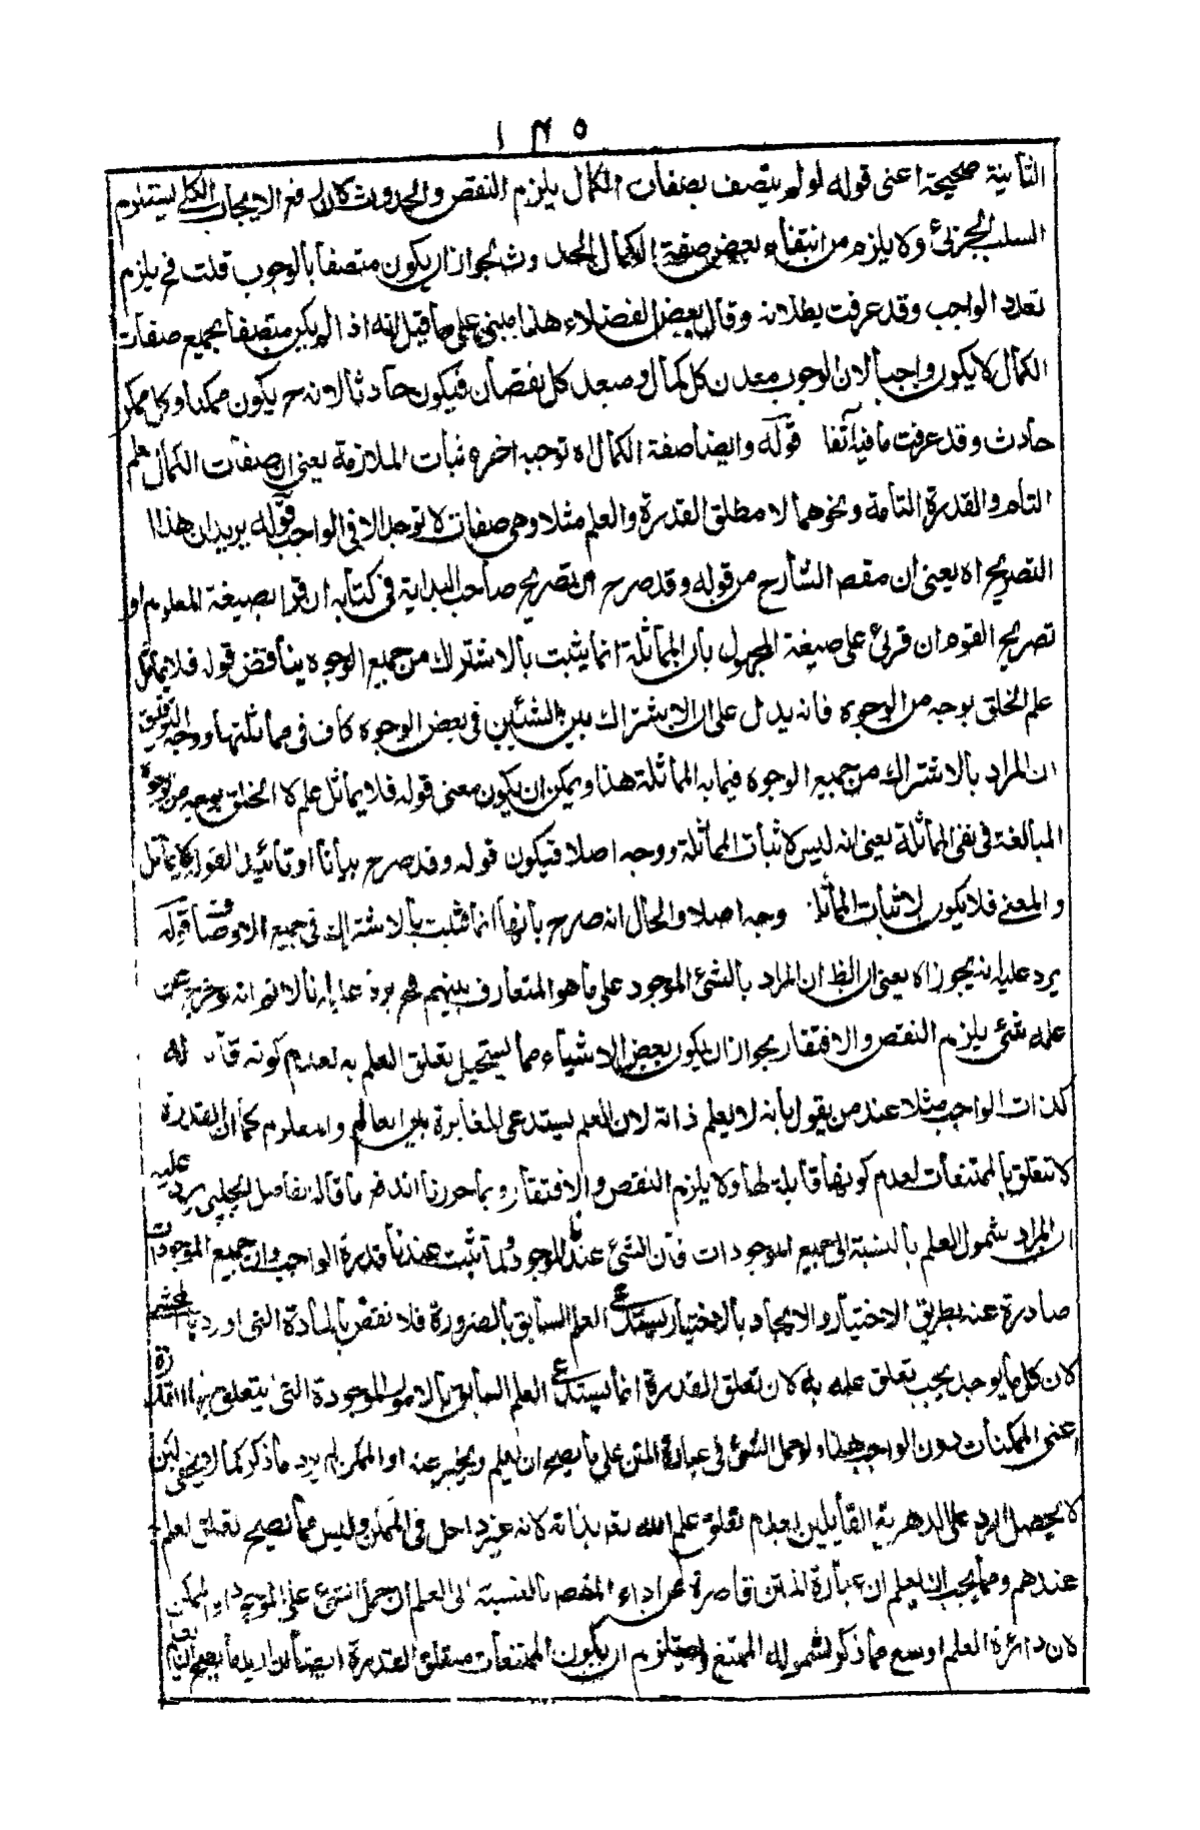 ١٣٥
الثانية صحيحة اعنى قوله لو لم يتصف بصفات الكمال يلزم النقص والحدوث لان رفع الايجاب الكلى يستلزم
السلب الجزئى ولا يلزم من انتفاء بعض صفة الكمال الحدوث لجواز ان يكون متصفا بالوجوب قلت فح يلزم
تعدد الواجب وقد عرفت بطلانه وقال بعض الفضلاء هذا مبنى على ما قيل انه اذا لم يكن متصفا بجميع صفات
الكمال لا يكون واجبا لان الوجوب معدن كل كمال ومبعد كل نقصان فيكون حادثا لانه ح يكون ممكنا وكل ممكن
حادث وقد عرفت ما فيه آنفا قوله وايضا صفة الكمال اه توجيه اخر لاثبات الملازمة يعنى ان صفات الكمال العلم
التام والقدرة التامة ونحوهما لا مطلق القدرة والعلم مثلا وهى صفات لا توجد الا فى الواجب قوله يريد ان هذا
التصريح اه يعنى ان مقصد الشارح من قوله وقد صرح ان تصريح صاحب البداية فى كتابه ان قرأ بصيغة المعلوم او
تصريح القوم ان قرئ على صيغة المجهول بان المماثلة انما يثبت بالاشتراك من جميع الوجوه يناقض قوله فلا يماثل
علم الخلق بوجه من الوجوه فانه يدل على ان الاشتراك بين الشئين فى بعض الوجوه كاف فى مماثلتها ووجه التوفيق
ان المراد بالاشتراك من جميع الوجوه فيما به المماثلة هذا ويمكن ان يكون معنى قوله فلا يماثل علم الخلق بوجه من الوجوه
المبالغة فى نفى المماثلة يعنى انه ليس لاثبات المماثلة ووجه اصلا فيكون قوله وقد صرح بيانا او تائيدا لقوله لا يماثل
والمعنى فلا يكون لاثبات المماثلة وجه اصلا والحال انه صرح بانها انما تثبت بالاشتراك فى جميع الاوصاف قوله
يرد عليه انه يجوز اه يعنى ان الظ ان المراد بالشئ الموجود على ما هو المتعارف بينهم فح يرد عليه انا لا نم انه لو خرج عن
علمه شئ يلزم النقص والافتقار بجواز ان يكون بعض الاشياء مما يستحيل تعلق العلم به لعدم كونه قابلا له
كذات الواجب مثلا عند من يقول بانه لا يعلم ذاته لان العلم يستدعى المغايرة بين العالم والمعلوم كما ان القدرة
لا تتعلق بالممتنعات لعدم كونها قابلة لها ولا يلزم النقص والافتقار وبما حررنا اندفع ما قاله الفاضل الچلپى يرد عليه
ان المراد شمول العلم بالنسبة الى جميع الموجودات فان الشئ عندنا الموجود ولما ثبت عندنا قدرة الواجب وان جميع الموجودات
صادرة عنه بطريق الاختيار والايجاد بالاختيار يستدعى العلم السابق بالضرورة فلا نقض بالمادة التى اوردها المحشى
لان كل ما يوجد يجب تعلق علمه به لان تعلق القدرة انما يستدعى العلم السابق بالامور الموجودة التى يتعلق بها القدرة
اعنى الممكنات دون الواجب هذا ولو حمل الشئ فى عبارة المتن على ما يصح ان يعلم ويخبر عنه او الممكن لم يرد ما ذكر كما لا يخفى لكن
لا يحصل الرد على الدهرية القائلين بعدم تعلق علم الله تعالى بذاته لانه غير داخل فى الممكن وليس مما يصح تعلق العلم
عندهم ومما يجب ان يعلم ان عبارة المتن قاصرة عن اداء المقصد بالنسبة الى العلم ان حمل الشئ على الموجود او الممكن
لان دائرة العلم اوسع مما ذكر لشموله الممتنع ويستلزم ان يكون الممتنعات متعلق القدرة ايضا ان اريد ما يصح ان يعلم